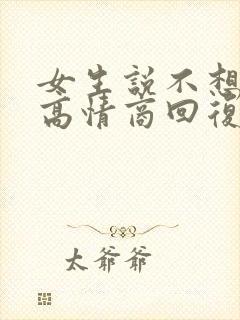 女生說不想
高情商回復
太爺爺